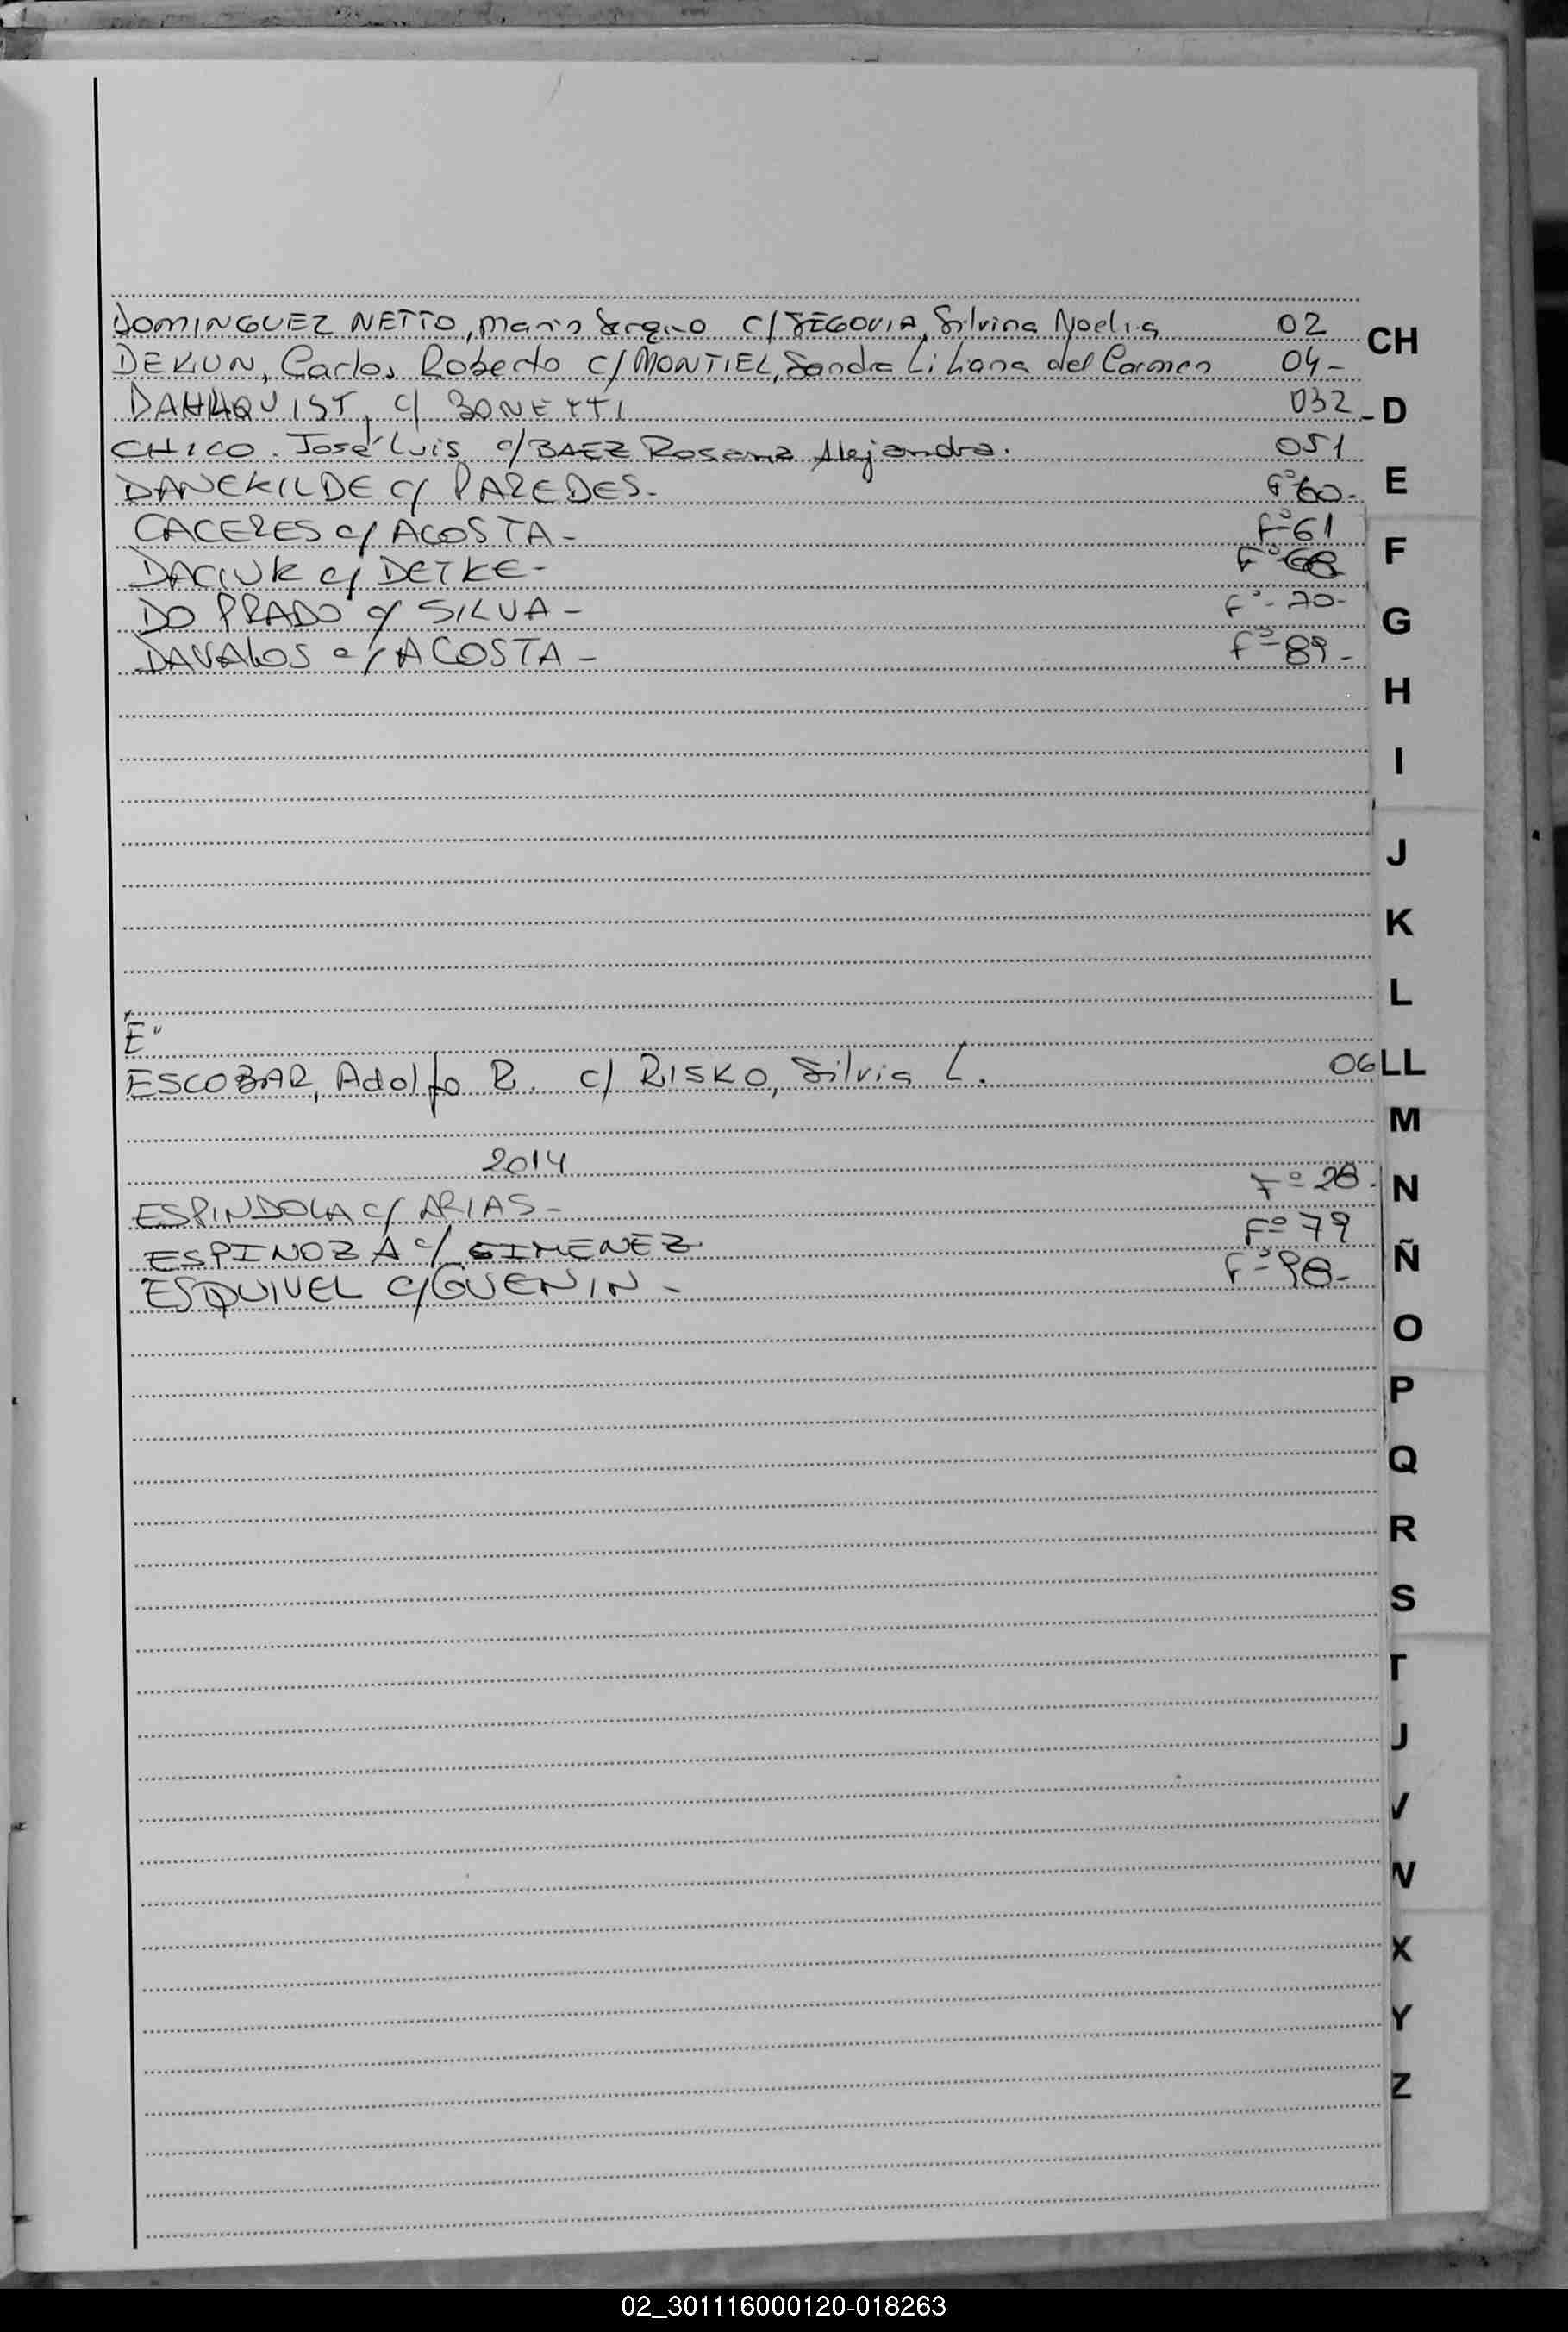 DOMINGUEZ NETTO, Mario Sergio c/ SEGOVIA, Silvina Noelia 02
CH
DEKUN, Carlos Roberto c/ MONTIEL, Sandra Liliana del Carmen 04-
DAHLQUIST, c/ BONETTI 032
D
CHICO. José Luis c/ BAEZ Rosana Alejandra. 051
DANCKILDE c/ PAREDES- Fº60-
E
CACERES c/ ACOSTA- Fº61
F
DACIUK c/ DETKE- Fº68
DO PRADO c/ SILVA- Fº-70-
G
DAVALOS c/ ACOSTA- Fº-89-
H
I
J
K
L
"E"
ESCOBAR, Adolfo R. c/ RISKO, Silvia L. 06
LL
M
2014
ESPINDOLA c/ ARIAS- Fº 28.
N
ESPINOZA c/ GIMENEZ Fº 79
Ñ
ESQUIVEL c/ GUENIN- Fº 98-
O
P
Q
R
S
T
U
V
W
X
Y
Z
02_301116000120-018263